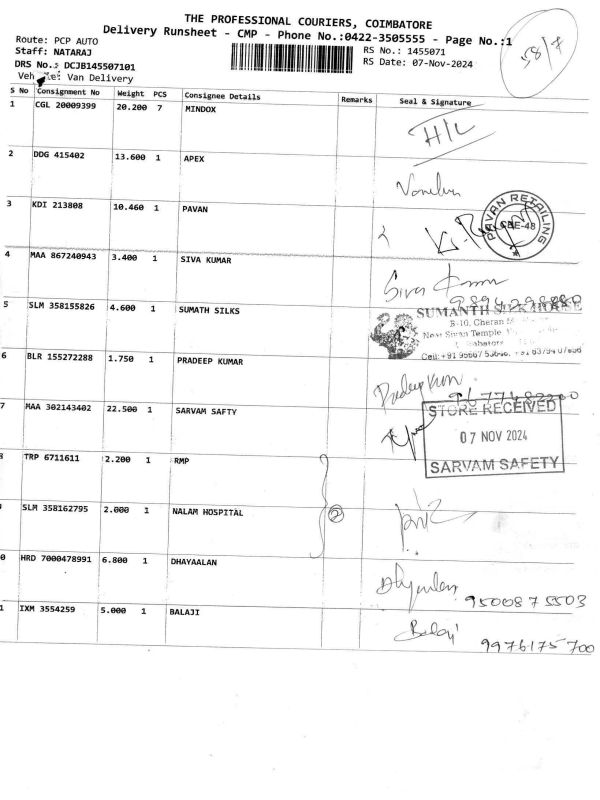 THE PROFESSIONAL COURIERS, COIMBATORE
Delivery Runsheet - CMP - Phone No.:0422-3505555 - Page No.:1
58/7
Route: PCP AUTO
Staff: NATARAJ
RS No.: 1455071
DRS No.: DCJB145507101
RS Date: 07-Nov-2024
Vehicle: Van Delivery
S No Consignment No Weight PCS Consignee Details Remarks Seal & Signature
1 CGL 20009399 20.200 7 MINDOX
H/L
2 DDG 415402 13.600 1 APEX
3 KDI 213808 10.460 1 PAVAN
PAVAN RETAILING
CBE-48
4 MAA 867240943 3.400 1 SIVA KUMAR
Siva Kumar
5 SLM 358155826 4.600 1 SUMATH SILKS
SUMANTH SILK HOUSE
B-10, Cheran
New Sivan Temple,
Cell: +91 95667 53646, +91 63794 07656
6 BLR 155272288 1.750 1 PRADEEP KUMAR
Pradeep Kum
9677482200
7 MAA 302143402 22.500 1 SARVAM SAFTY
STORE RECEIVED
07 NOV 2024
SARVAM SAFETY
8 TRP 6711611 2.200 1 RMP
2
SLM 358162795 2.000 1 NALAM HOSPITAL
0 HRD 7000478991 6.800 1 DHAYAALAN
Dhyanlan
9500875503
1 IXM 3554259 5.000 1 BALAJI
Balaji
9976175700